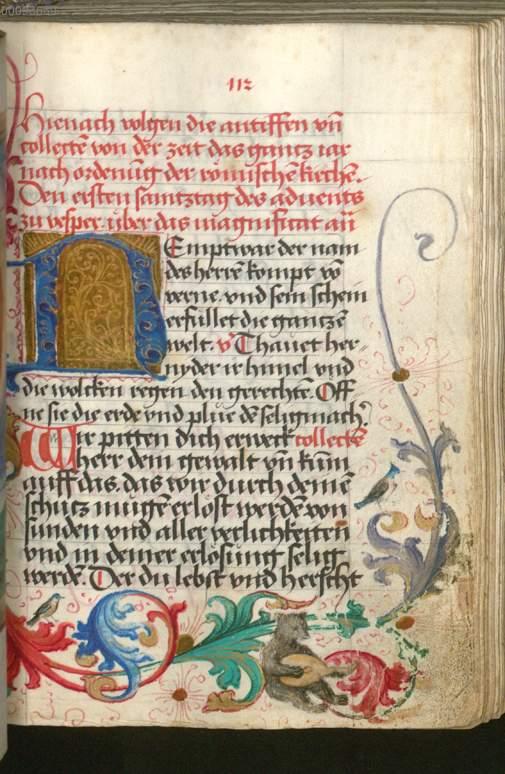 112
Hienach volgen die antiffen vn̄
collectē von der zeit das gantz iar
nach ordenūg der romischē kirchē.
Den ersten samtztag des aduents
zu vesper. über das magnificat an̄
Nempt war der nam
des herrē kompt vō
verne. vnd sein schein
erfüllet die gantzē
welt. v̄ Thauet her-
nyder ir himel vnd
die wolcken regen den gerechtē. Off
ne sie die erde vnd plüe dē seligmach̄.
Wir pitten dich erweck collectē
herr dein gewalt vn̄ kum̄
auff das. das wir durch deinē
schutz mügē erlöst werdē von
sunden vnd aller verlichkeiten
vnd in deiner erlösung selig
werdē. Der du lebst vnd herscht